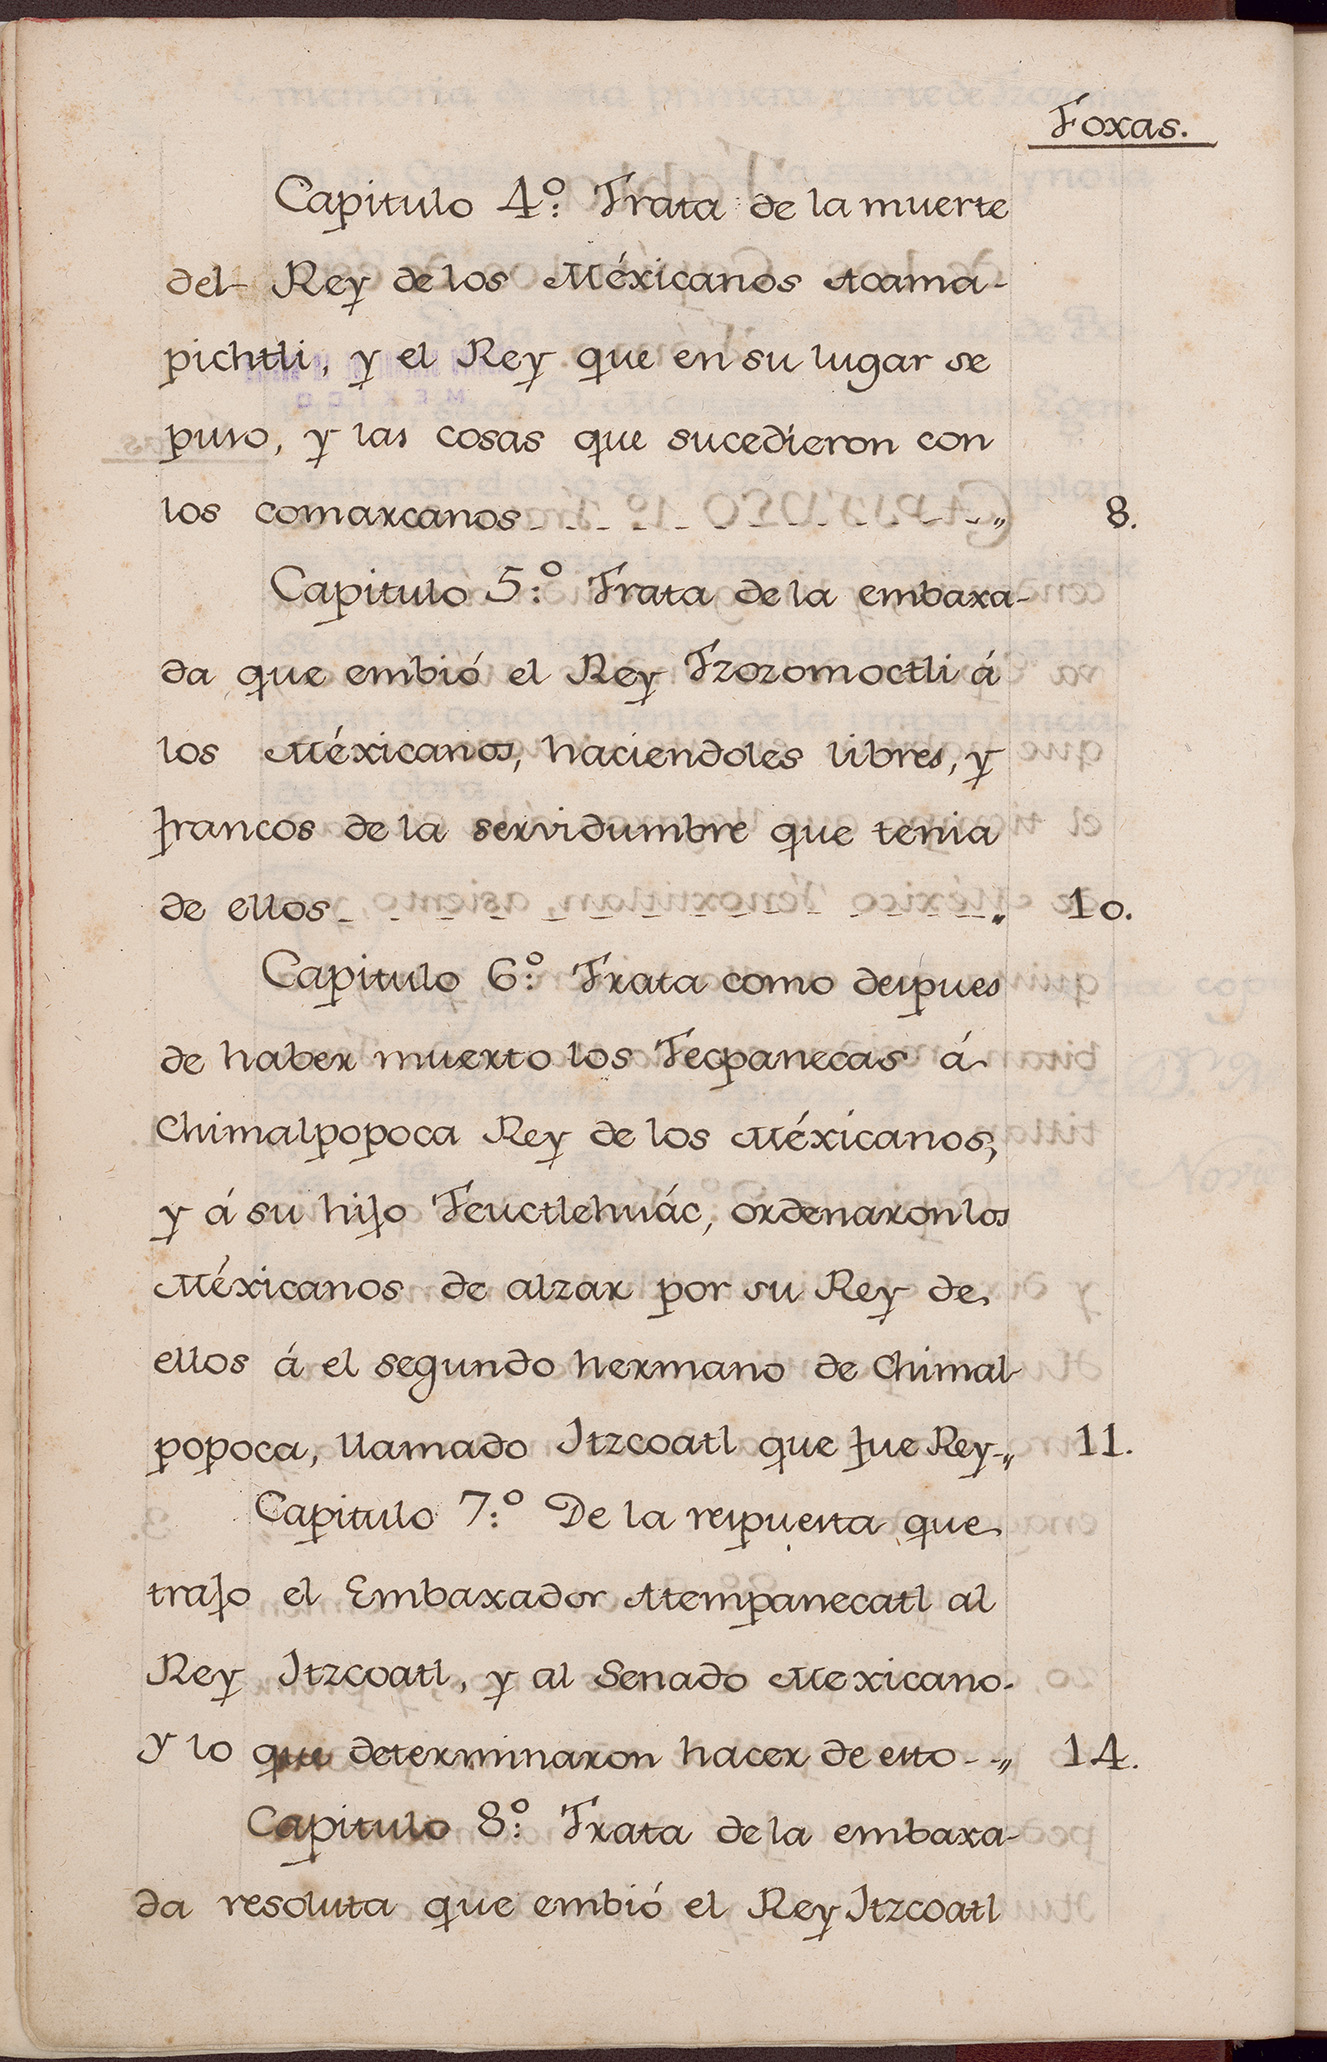 Foxas.
Capitulo 4º: Trata de la muerte
del Rey de los Méxicanos Acama-
pichtli, y el Rey que en su lugar se
puso, y las cosas que sucedieron con
los comarcanos - - - - - - - - - - - - - - „ 8.
Capitulo 5:º Trata de la embaxa-
da que embió el Rey Tzozomoctli á
los Méxicanos, haciendoles libres, y
francos de la servidumbre que tenia
de ellos - - - - - - - - - - - - - - „ 10.
Capitulo 6:º Trata como despues
de haber muerto los Tecpanecas á
Chimalpopoca Rey de los Méxicanos,
y á su hijo Teuctlehuác, ordenaron los
Méxicanos de alzar por su Rey de
ellos á el segundo hermano de Chimal-
popoca, llamado Itzcoatl que fue Rey-„ 11.
Capitulo 7:º De la respuesta que
trajo el Embaxador Atempanecatl al
Rey Itzcoatl, y al Senado Mexicano.
y lo que determinaron hacer de esto - -„ 14.
Capitulo 8:º Trata de la embaxa-
da resoluta que embió el Rey Itzcoatl